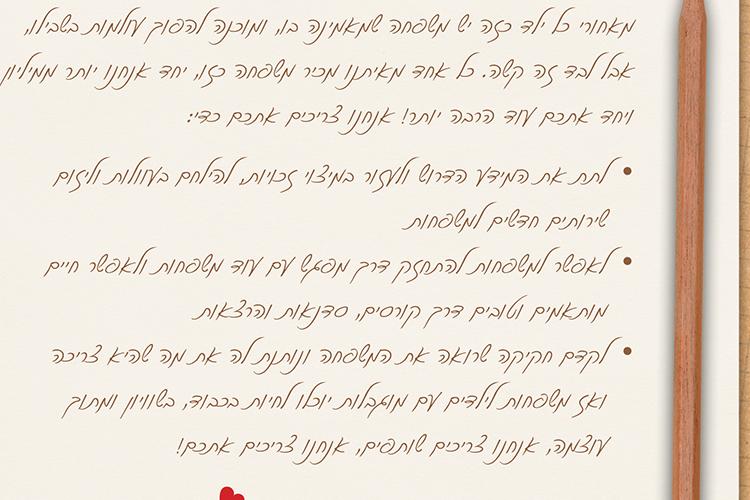 מאחורי כל ילד כזה יש משפחה שמאמינה בו, ומוכנה להפוך עולמות בשבילו,
אבל לבד זה קשה. כל אחד מאיתנו מכיר משפחה כזו, יחד אנחנו יותר ממיליון
ויחד אתכם עוד הרבה יותר! אנחנו צריכים אתכם כדי:
• לתת את המידע הדרוש ולעזור במיצוי זכויות, להילחם בעוולות וליזום
שירותים חדשים למשפחות
• לאפשר למשפחות להתחזק דרך מפגש עם עוד משפחות ולאפשר חיים
מותאמים וטובים דרך קורסים, סדנאות והרצאות
• לקדם חקיקה שרואה את המשפחה ונותנת לה את מה שהיא צריכה
ואז משפחות לילדים עם מוגבלות יוכלו לחיות בכבוד, בשוויון ומתוך
עוצמה, אנחנו צריכים שותפים, אנחנו צריכים אתכם!